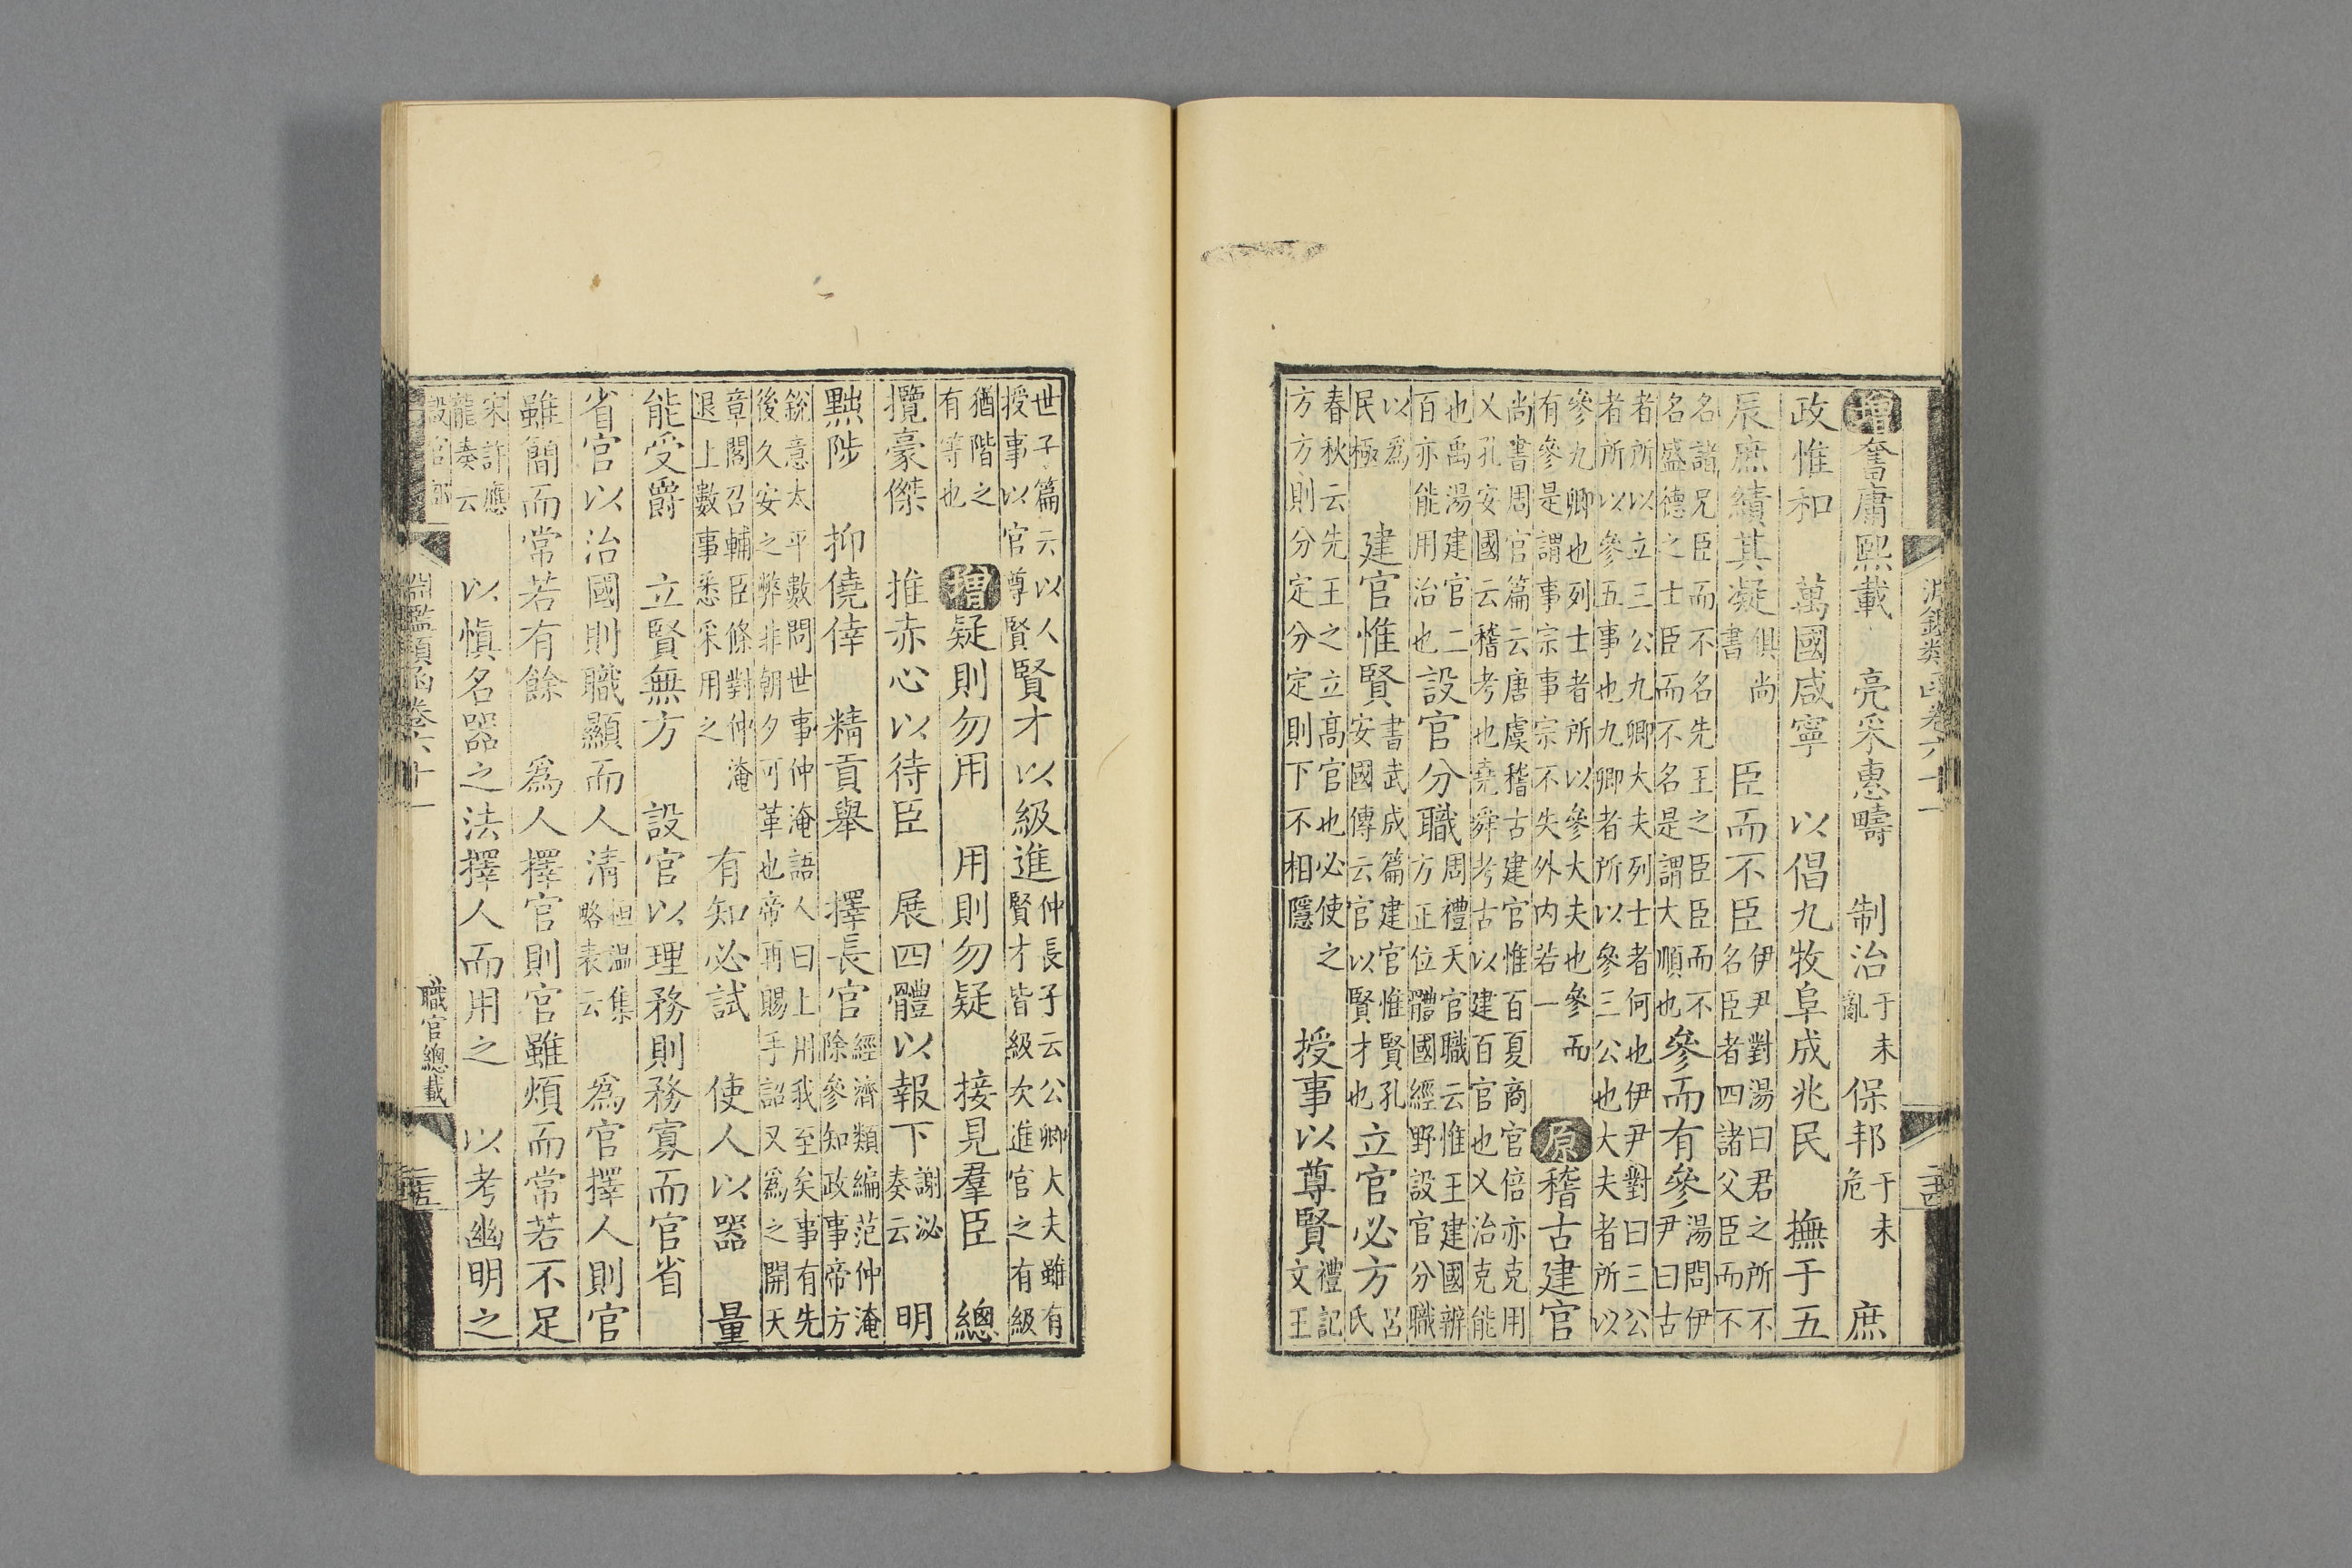 增奮庸熙載 亮采惠疇 制治于未亂 保邦于未危 庶
政惟和 萬國咸寧 以倡九牧阜成兆民 撫于五
辰庶績其凝俱尚書 臣而不臣伊尹對湯曰君之所不名臣者四諸父臣而不
名諸兄臣而不名先王之臣臣而不名盛德之士臣而不名是謂大順也參而有參湯問伊尹曰古
者所以立三公九卿大夫列士者何也伊尹對曰三公者所以參五事也九卿者所以參三公也大夫者所以
參九卿也列士者所以參大夫也參而有參是謂事宗事宗不失外内若一 原稽古建官
尚書周官篇云唐虞稽古建官惟百夏商官倍亦克用乂孔安國云稽考也堯舜考古以建百官也乂治克能
也禹湯建官二百亦能用治也設官分職周禮天官職云惟王建國辨方正位體國經野設官分職
以爲民極 建官惟賢書武成篇建官惟賢孔安國傳云官以賢才也立官必方呂氏
春秋云先王之立高官也必使之方方則分定分定則下不相隱 授事以尊賢禮記文王
世子篇云以人授事以官尊賢賢才以級進仲長子云公卿大夫雖有賢才皆級次進官之有級
猶階之有等也 增疑則勿用 用則勿疑 接見羣臣 總
攬豪傑 推赤心以待臣 展四體以報下謝泌奏云 明
黜陟 抑僥倖 精貢舉 擇長官經濟類編范仲淹除參知政事帝方
銳意太平數問世事仲淹語人曰上用我至矣事有先後久安之弊非朝夕可革也帝再賜手詔又爲之開天
章閣召輔臣條對仲淹退上數事悉采用之 有知必試 使人以器 量
能受爵 立賢無方 設官以理務則務寡而官省
省官以治國則職顯而人清桓温集略表云 爲官擇人則官
雖簡而常若有餘 爲人擇官則官雖煩而常若不足
宋許應龍奏云 以愼名器之法擇人而用之 以考幽明之
淵鑑類函卷六十一
職官總載